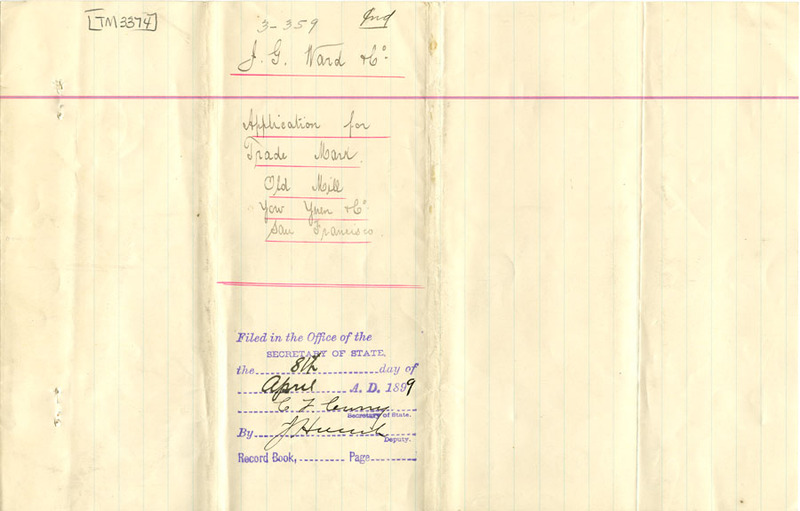 [TM3374]
3-359 Ind
J. G. Ward & Co.
Application for
Trade Mark.
Old Mill
Yow Yuen & Co.
San Francisco.
Filed in the Office of the
SECRETARY OF STATE,
the 8th day of
April A. D. 1899
C F Curry
Secretary of State.
By
Deputy.
Record Book, Page